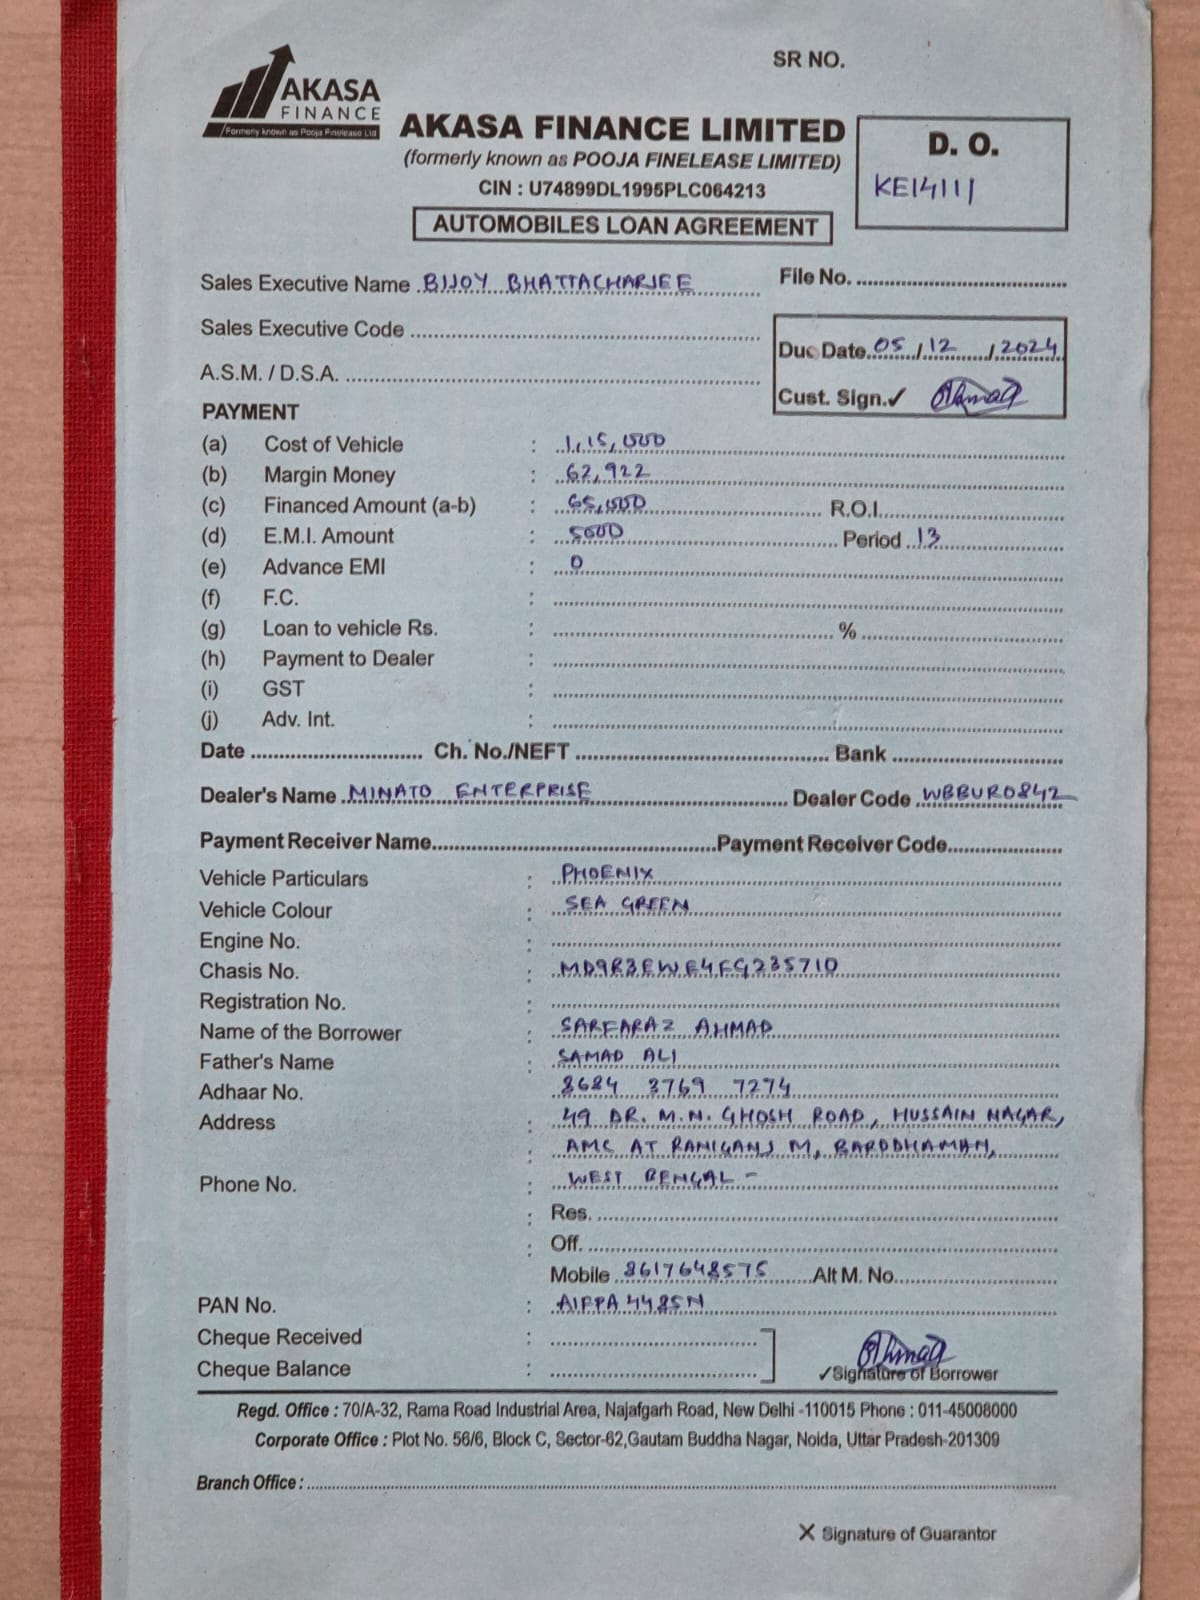 SR NO.
AKASA
FINANCE
Formerly known as Pooja Finelease Ltd
AKASA FINANCE LIMITED
(formerly known as POOJA FINELEASE LIMITED)
CIN : U74899DL1995PLC064213
AUTOMOBILES LOAN AGREEMENT
D. O.
KE14111
Sales Executive Name BIJOY BHATTACHARJEE
File No.
Sales Executive Code
Due Date 05/12/2024
A.S.M. / D.S.A.
Cust. Sign.✓
PAYMENT
(a) Cost of Vehicle : 1,15,000
(b) Margin Money : 62,922
(c) Financed Amount (a-b) : 65,000 R.O.I.
(d) E.M.I. Amount : 5000 Period 13
(e) Advance EMI : 0
(f) F.C. :
(g) Loan to vehicle Rs. : %
(h) Payment to Dealer :
(i) GST :
(j) Adv. Int. :
Date Ch. No./NEFT Bank
Dealer's Name MINATO ENTERPRISE Dealer Code WBBUR0842
Payment Receiver Name Payment Receiver Code
Vehicle Particulars : PHOENIX
Vehicle Colour : SEA GREEN
Engine No. :
Chasis No. : MD9R3EWE4FG235710
Registration No. :
Name of the Borrower : SARFARAZ AHMAD
Father's Name : SAMAD ALI
Adhaar No. : 8684 3769 7274
Address : 49 DR. M.N. GHOSH ROAD, HUSSAIN NAGAR,
: AMC AT RANIGANJ M, BARDDHAMAN,
Phone No. : WEST BENGAL -
: Res.
: Off.
Mobile 8617648575 Alt M. No.
PAN No. : AIFPA4485N
Cheque Received :
Cheque Balance :
✓Signature of Borrower
Regd. Office : 70/A-32, Rama Road Industrial Area, Najafgarh Road, New Delhi -110015 Phone : 011-45008000
Corporate Office : Plot No. 56/6, Block C, Sector-62,Gautam Buddha Nagar, Noida, Uttar Pradesh-201309
Branch Office :
X Signature of Guarantor